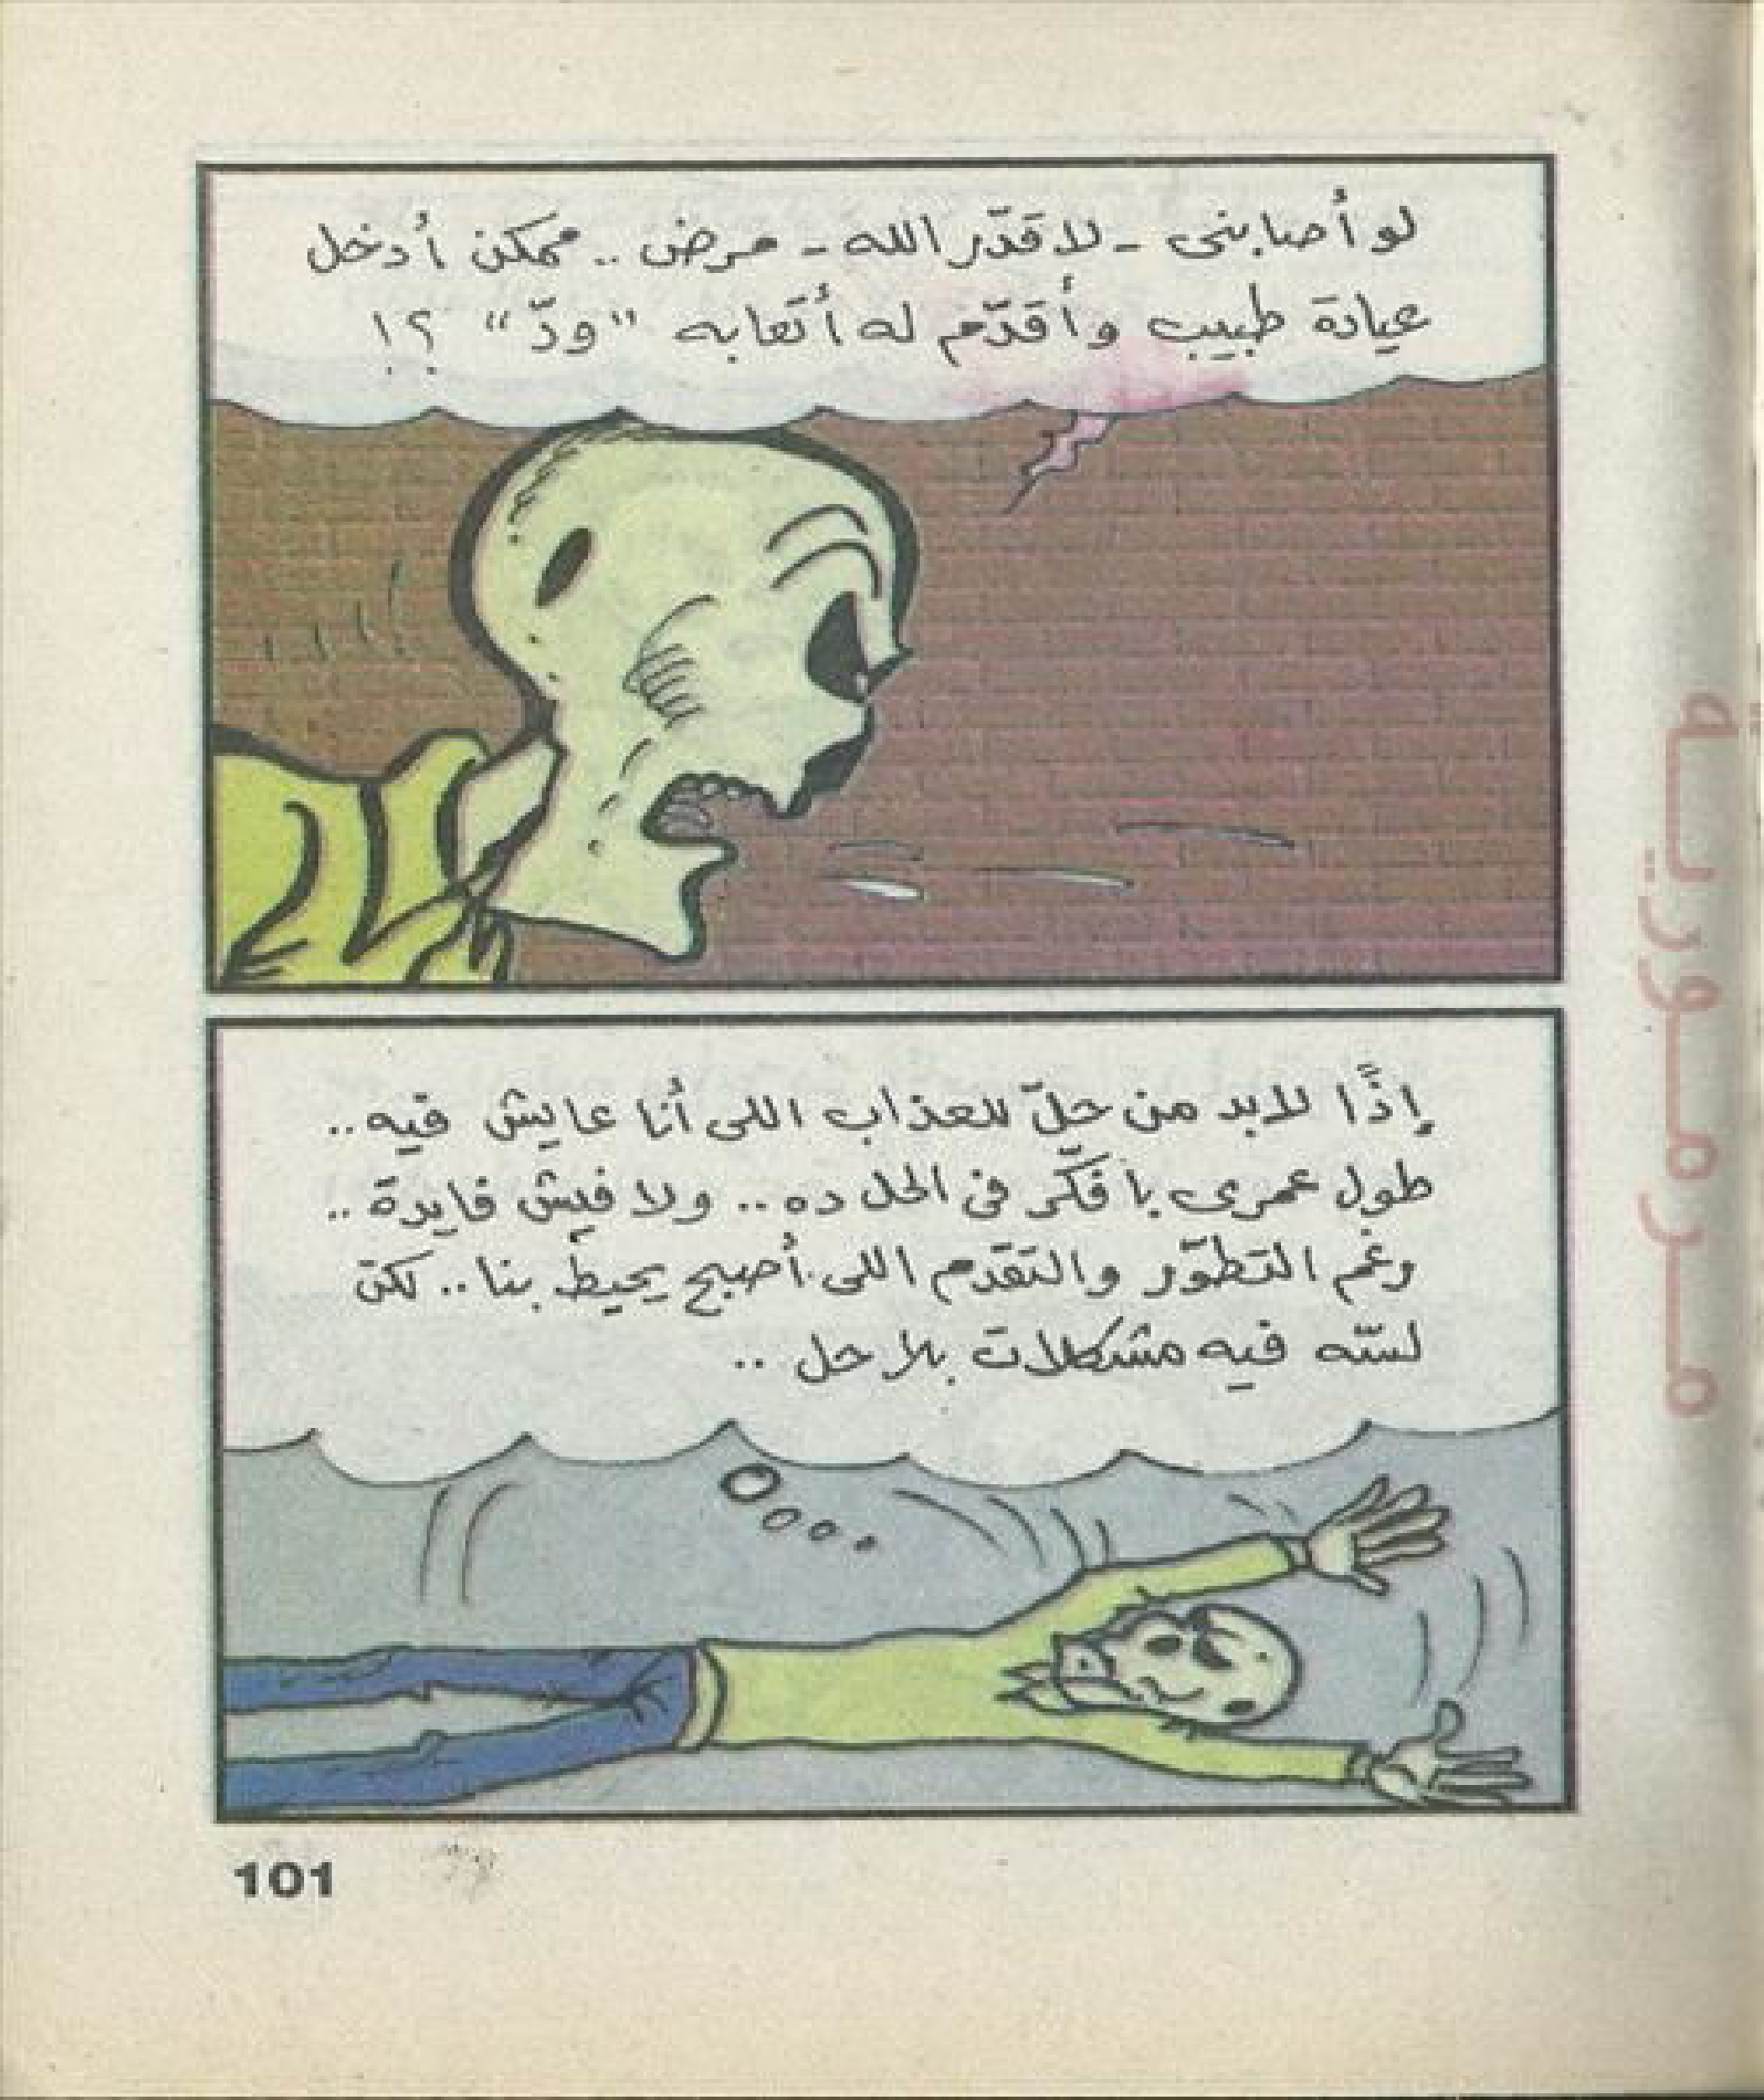 لو أصابنى - لا قدّر الله - مرض .. ممكن أدخل
عيادة طبيب وأقدّم له أتعابه "ودّ" ؟!
إذًا لابد من حلّ للعذاب اللى أنا عايش فيه ..
طول عمرى بأفكّر فى الحل ده .. ولا فيش فايدة ..
رغم التطوّر والتقدّم اللى أصبح يحيط بنا .. لكن
لسّه فيه مشكلات بلا حل ..
101
مرمورية